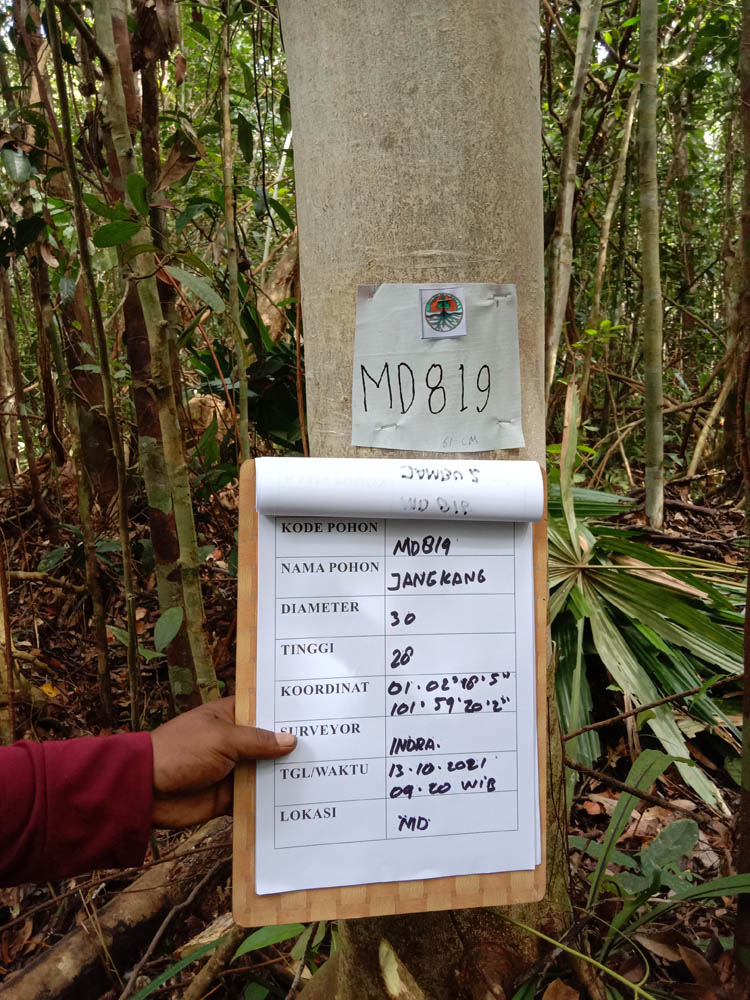 MD819
61 CM
KODE POHON MD819
NAMA POHON JANGKANG
DIAMETER 30
TINGGI 28
KOORDINAT 01.02"18'5"
101.59'20'2"
SURVEYOR INDRA.
TGL/WAKTU 13.10.2021
09.20 WIB
LOKASI MD